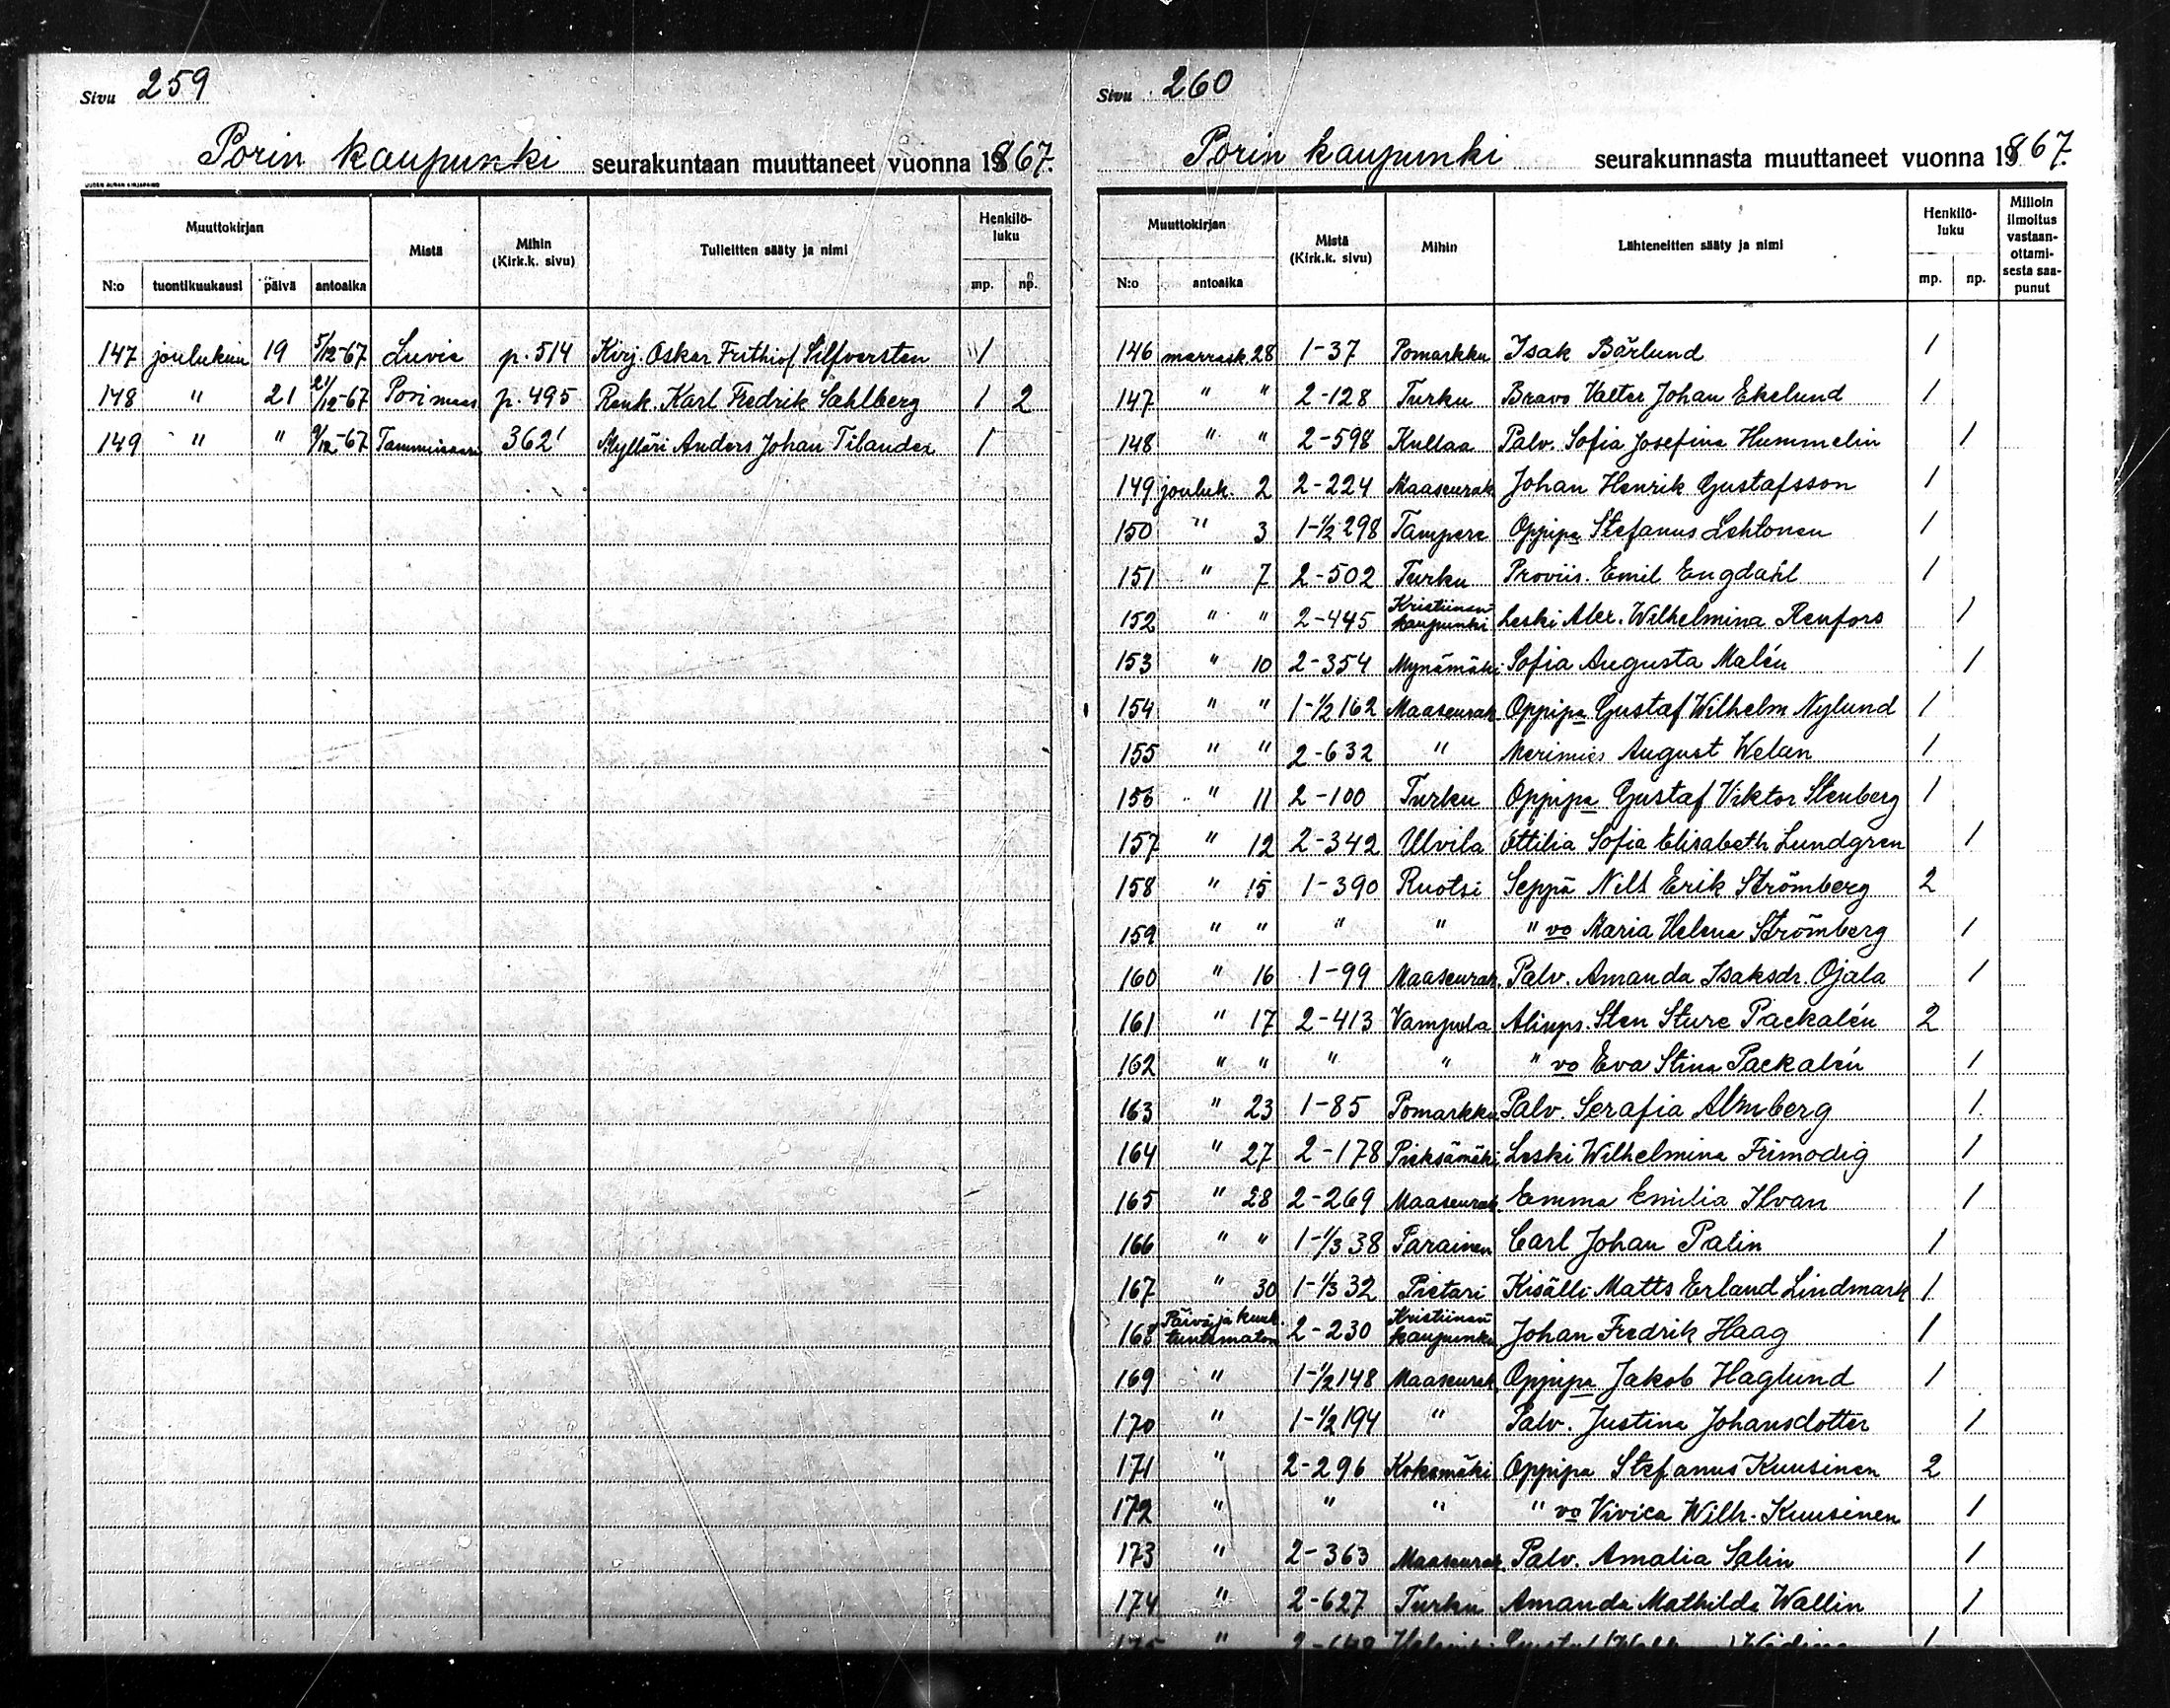 Sivu 259
Porin kaupunki seurakuntaan muuttaneet vuonna 1867.
UUDEN AURAN KIRJAPAINO
Muuttokirjan Mistä Mihin (Kirk.k. sivu) Tulleitten sääty ja nimi Henkilö-luku
N:o tuontikuukausi päivä antoaika mp. np.
147 joulukuu 19 5/12-67 Luvia p. 514 Kirj. Oskar Frithiof Silfversten 1
148 " 21 21/12-67 Pori maas p. 495 Renk. Karl Fredrik Sahlberg 1 2
149 " " 9/12-67 Tammisaari 362 Mylläri Anders Johan Tilander 1
Sivu 260
Porin kaupunki seurakunnasta muuttaneet vuonna 1867.
Muuttokirjan Mistä (Kirk.k. sivu) Mihin Lähteneitten sääty ja nimi Henkilö-luku Milloin ilmoitus vastaan-ottami-sesta saa-punut
N:o antoaika mp. np.
146 marrask 28 1-37 Pomarkku Isak Bärlund 1
147 " " 2-128 Turku Bravo Valter Johan Ekelund 1
148 " " 2-598 Kullaa Palv. Sofia Josefina Hummelin 1
149 jouluk. 2 2-224 Maaseurak Johan Henrik Gustafsson 1
150 " 3 1-1/2 298 Tampere Oppipa Stefanus Lehtonen 1
151 " 7 2-502 Turku Proviis. Emil Engdahl 1
152 " " 2-445 Kristiinankaupunki Leski Alex. Wilhelmina Renfors 1
153 " 10 2-354 Mynämäki Sofia Augusta Malén 1
154 " " 1-1/2 162 Maaseurak. Oppipa Gustaf Wilhelm Nylund 1
155 " " 2-632 " Merimies August Welan 1
156 " 11 2-100 Turku Oppipa Gustaf Viktor Stenberg 1
157 " 12 2-342 Ulvila Ottilia Sofia Elisabeth Lundgren 1
158 " 15 1-390 Ruotsi Seppä Nils Erik Strömberg 2
159 " " " " " vo Maria Helena Strömberg 1
160 " 16 1-99 Maaseurak. Palv. Amanda Isaksdr. Ojala 1
161 " 17 2-413 Vampula Aliups. Sten Sture Packalén 2
162 " " " " " vo Eva Stina Packalén 1
163 " 23 1-85 Pomarkku Palv. Serafia Almberg 1
164 " 27 2-178 Pieksämäki Leski Wilhelmina Frimodig 1
165 " 28 2-269 Maaseurak. Emma Emilia Ilvan 1
166 " " 1-1/3 38 Parainen Carl Johan Palin 1
167 " 30 1-1/3 32 Pietari Kisälli Matts Erland Lindmark 1
168 Päivä ja kuuk. tuntematon 2-230 Kristiinankaupunki Johan Fredrik Haag 1
169 " 1-1/2 148 Maaseurak. Oppipa Jakob Haglund 1
170 " 1-1/2 194 " Palv. Justina Johansdotter 1
171 " 2-296 Kokemäki Oppipa Stefanus Kuusinen 2
172 " " " " vo Vivica Wilh. Kuusinen 1
173 " 2-363 Maaseurak. Palv. Amalia Salin 1
174 " 2-627 Turku Amanda Mathilda Wallin 1
175 " 1